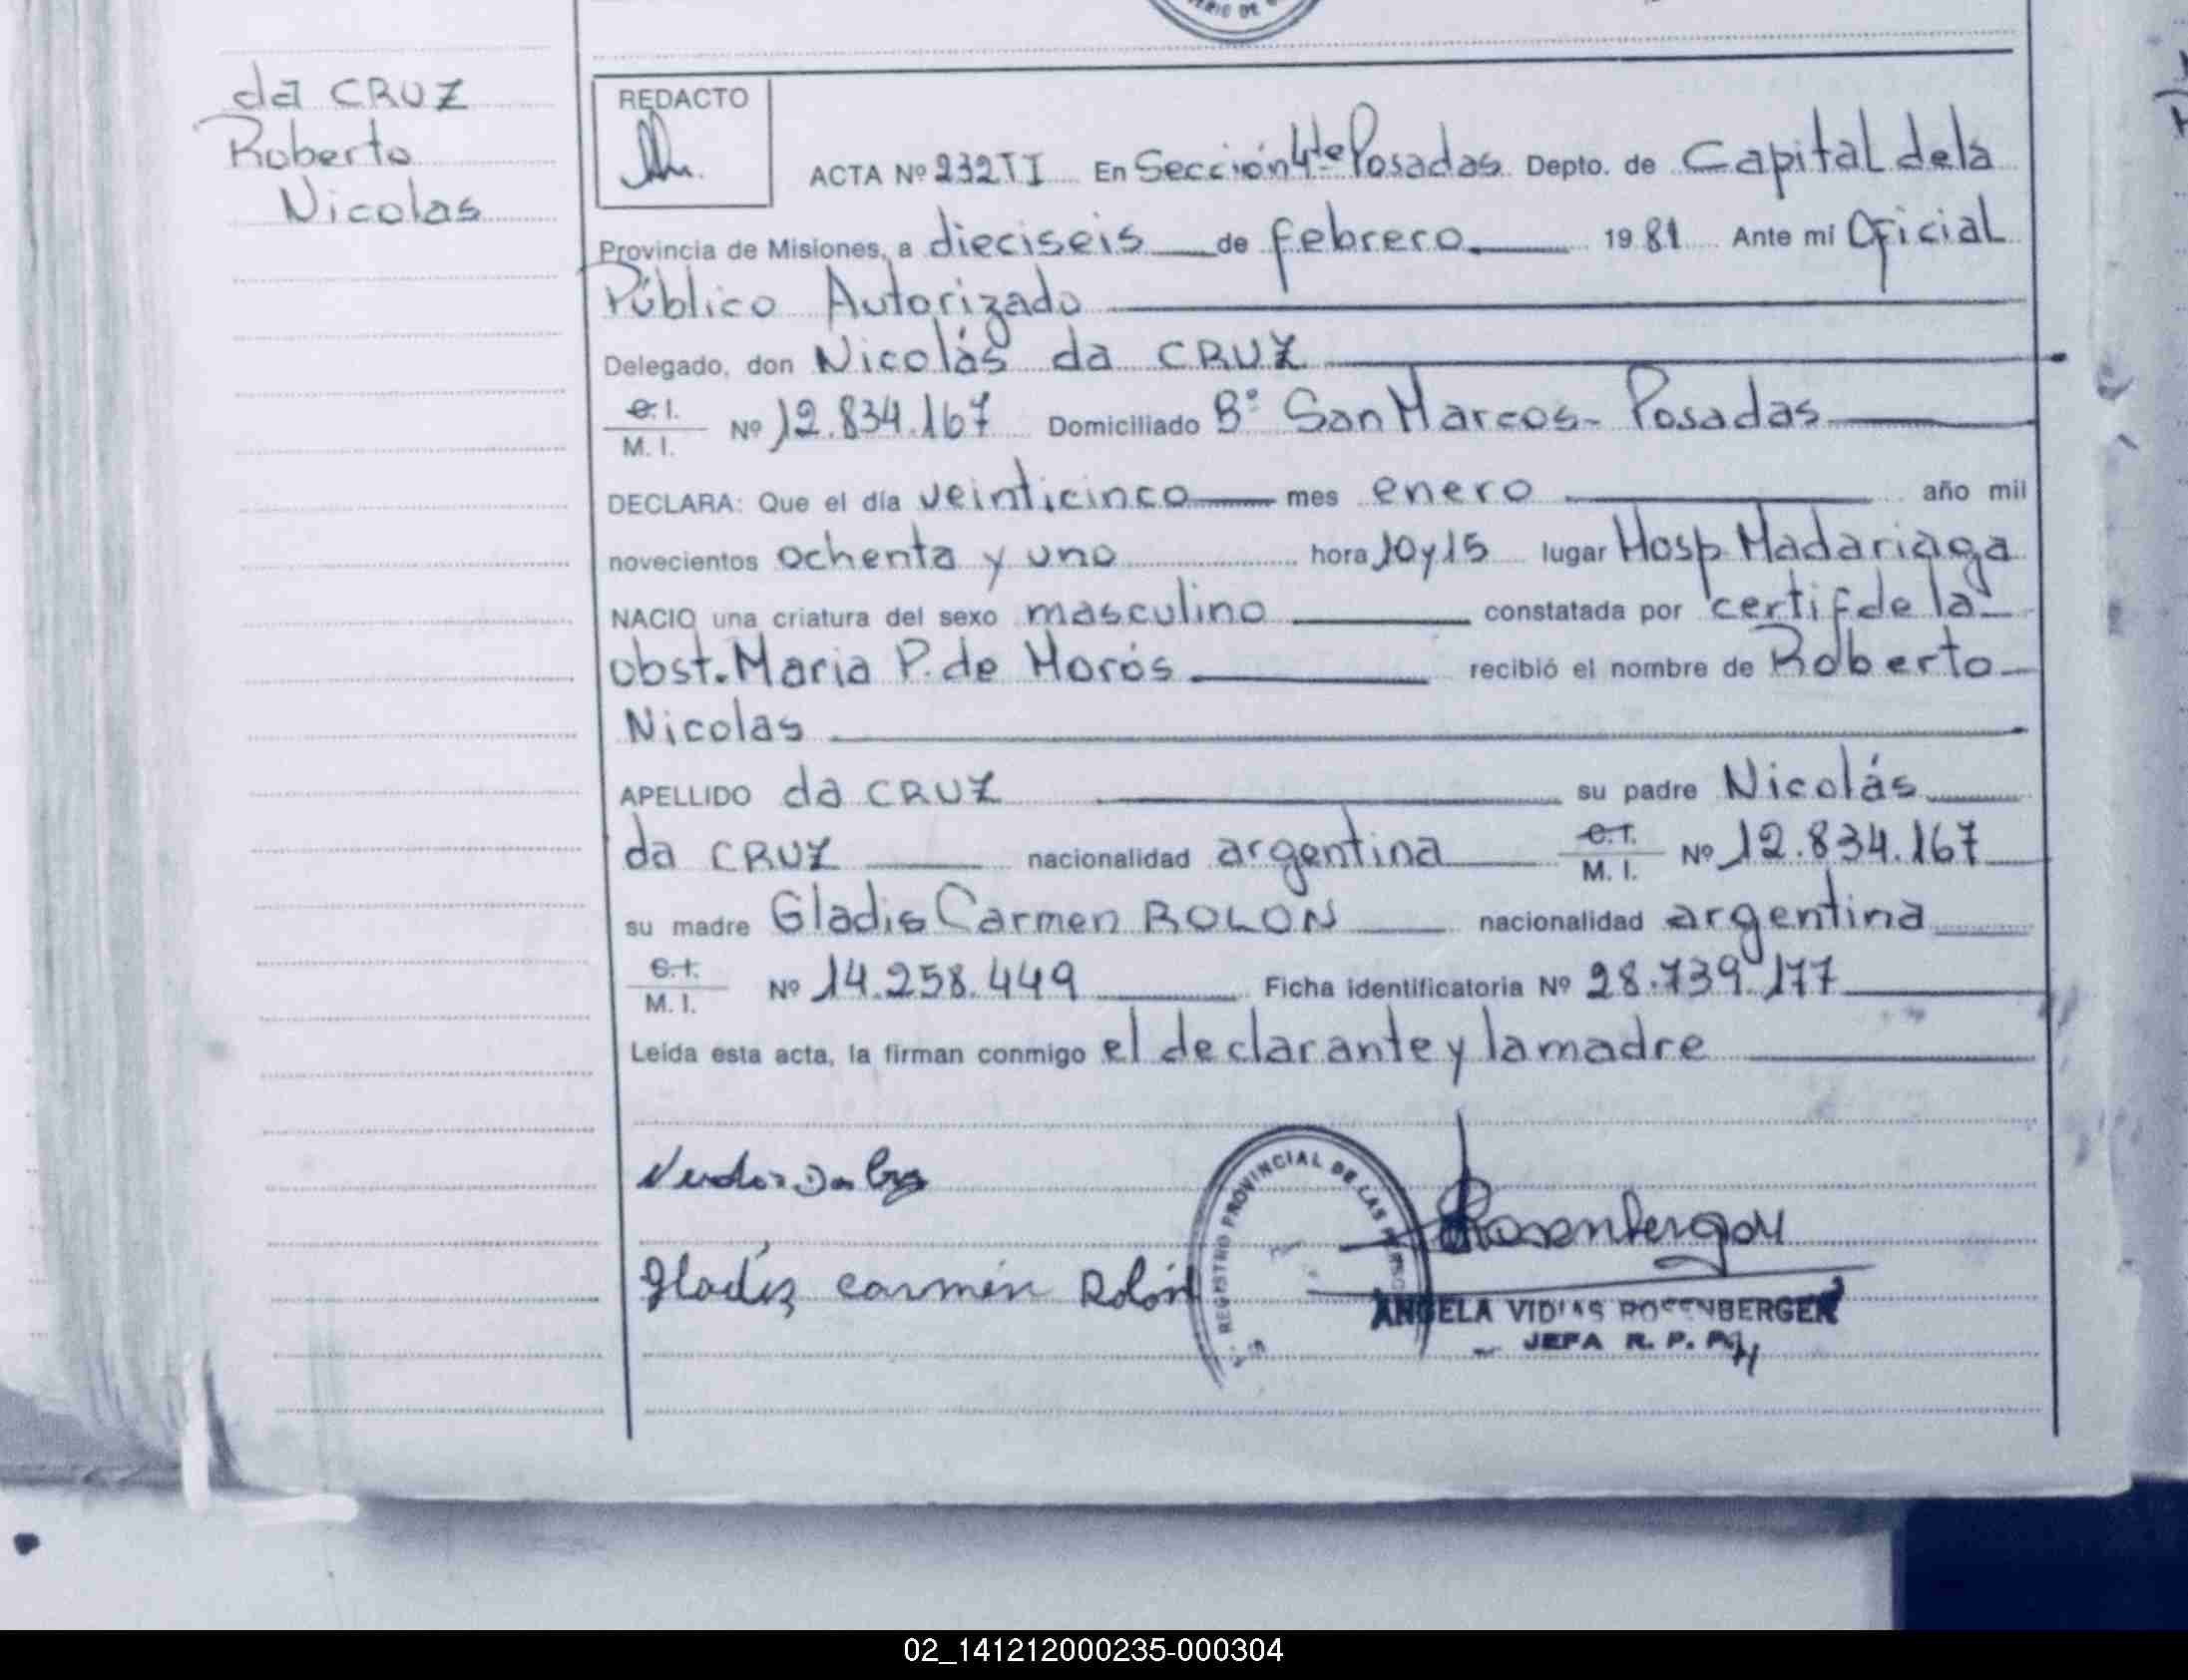 ERIO DE
da CRUZ
Roberto
Nicolas
REDACTO
ACTA Nº 232 TI En Sección 4te Posadas Depto. de Capital de la
Provincia de Misiones, a dieciseis de febrero 1981 Ante mi Oficial
Público Autorizado
Delegado, don Nicolás da CRUZ
C.I.
M. I. Nº 12.834.167 Domiciliado Bº San Marcos - Posadas
DECLARA: Que el día veinticinco mes enero año mil
novecientos ochenta y uno hora 10 y 15 lugar Hosp Madariaga
NACIO una criatura del sexo masculino constatada por certif de la
obst. Maria P. de Morós recibió el nombre de Roberto
Nicolas
APELLIDO da CRUZ su padre Nicolás
da CRUZ nacionalidad argentina C.I. M. I. Nº 12.834.167
su madre Gladis Carmen ROLON nacionalidad argentina
C.I.
M. I. Nº 14.258.449 Ficha identificatoria Nº 28.739.177
Leída esta acta, la firman conmigo el declarante y la madre
REGISTRO PROVINCIAL DE LAS
Gladis Carmen Rolón
ANGELA VIDIAS ROSENBERGER
JEFA R. P. P.
02_141212000235-000304